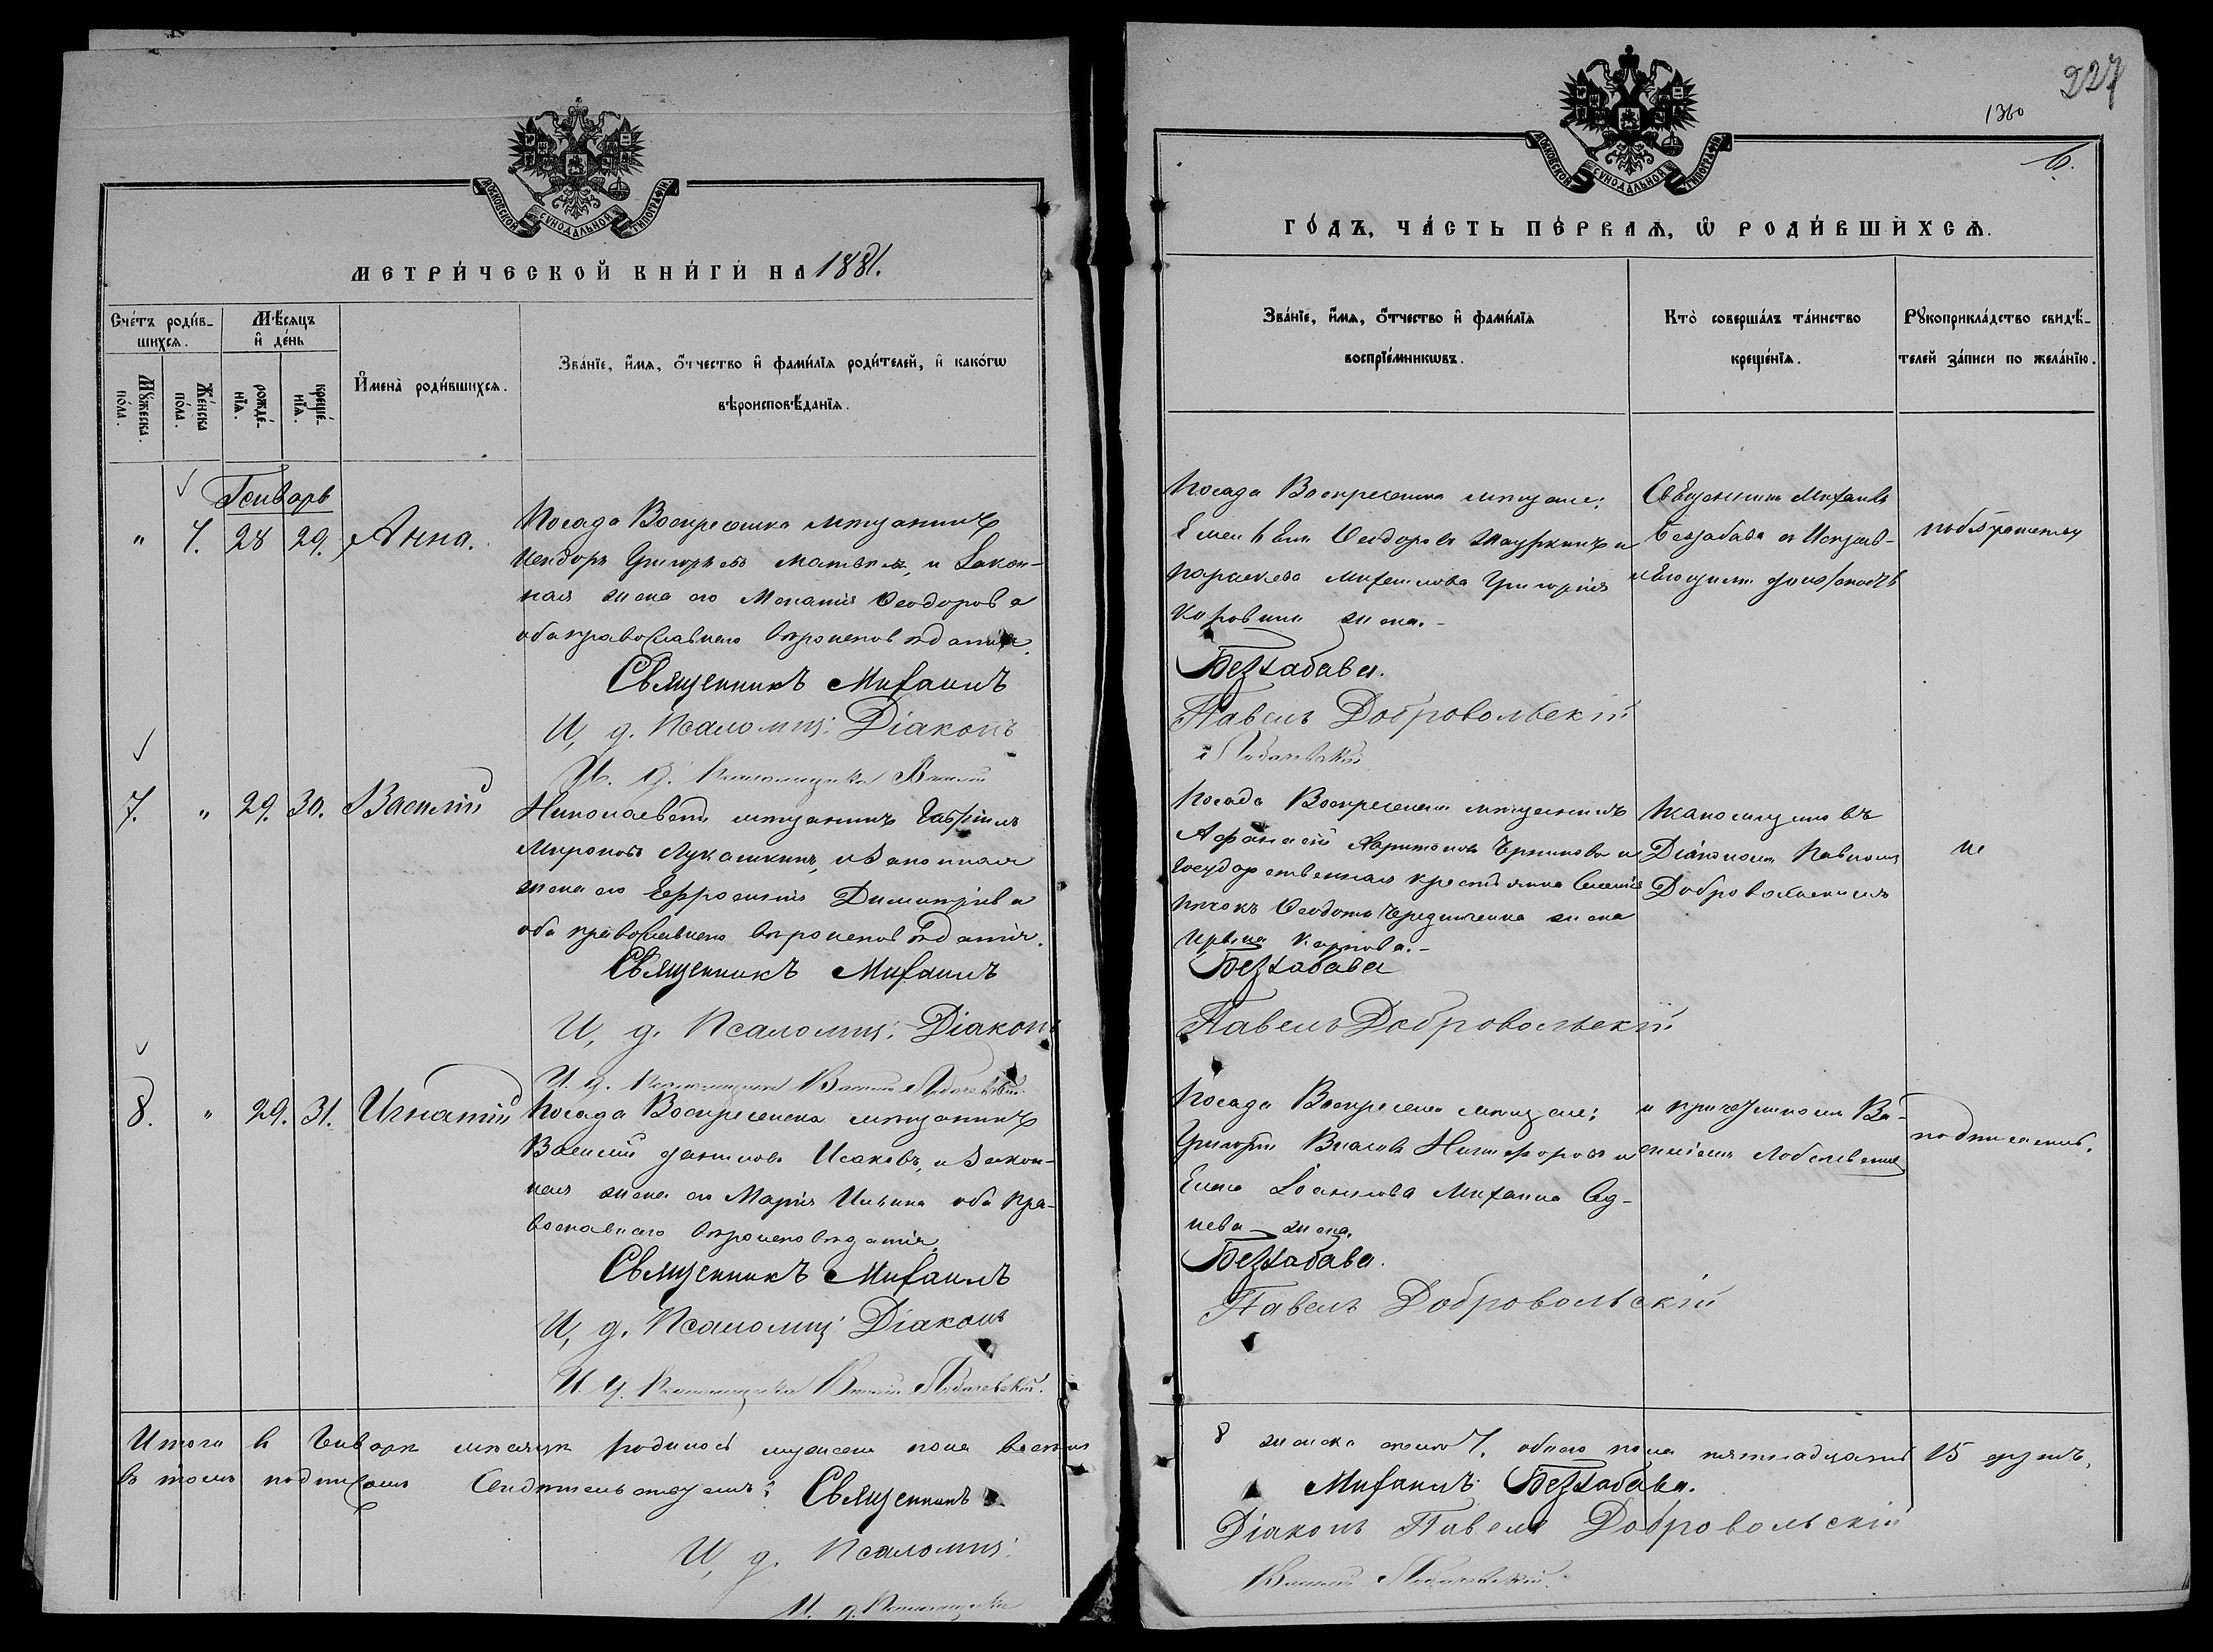 МОСКОВСКОЙ СѴНОДАЛЬНОЙ ТИПОГРАФІИ
МЕТРИ́ЧЕСКОЙ КНИ́ГИ НА 1881.
Сче́тъ роди́в-
шихсѧ.
Мѣ́сѧцъ
и҆ де́нь
Мꙋ́жеска по́ла.
Же́нска по́ла.
рожде́-нїѧ.
креще́-нїѧ.
И҆мена̀ роди́вшихсѧ.
Зва́нїе, и҆́мѧ, ѻ҆́тчество и҆ фами́лїѧ роди́телей, и҆ како́гѡ
вѣроисповѣ́данїѧ.
Генварь
" 7. 28 29. Анна.
Посада Воскресенска мѣщанинъ
Исидоръ Григорьевъ Матвѣевъ, и закон-
ная жена его Меланія Ѳеодорова
оба православнаго вѣроисповѣданія.
Священникъ Михаилъ
И, д. Псаломщ: Діаконъ
И. д. Псаломщика Василій
7. " 29. 30. Василій
Николаевскій мѣщанинъ Гавріилъ
Мироновъ Лукашкинъ, и законная
жена его Евфросинія Димитріева
оба православнаго вѣроисповѣданія.
Священникъ Михаилъ
И, д. Псаломщ: Діаконъ
И. д. Псаломщика Василій Лобачевскій.
8. " 29. 31. Игнатій
Посада Воскресенска мѣщанинъ
Василій Даниловъ Исаковъ, и закон-
ная жена его Марія Ильина оба пра-
вославнаго вѣроисповѣданія.
Священникъ Михаилъ
И, д. Псаломщ: Діаконъ
И. д. Псаломщика Василій Лобачевскій.
Итого в Генварѣ мѣсяцѣ родилось мужеска пола восемь
въ томъ подписомъ свидѣтельствуемъ: Священникъ
И, д. Псаломщ:
И. д. Псаломщика
227
1360
6.
МОСКОВСКОЙ СѴНОДАЛЬНОЙ ТИПОГРАФІИ
ГО́ДЪ, ЧА́СТЬ ПЕ́РВАѦ, Ѡ҆ РОДИ́ВШИХСѦ.
Зва́нїе, и҆́мѧ, ѻ҆́тчество и҆ фами́лїѧ
воспрїе́мникѡвъ.
Кто̀ соверша́лъ та́инство
креще́нїѧ.
Рꙋкоприкла́дство свидѣ́-
телей за́писи по жела́нїю.
Посада Воскресенска мѣщане:
Ѳеодоровъ и
Параскева Михаилова Григорія
жена.-
Безхабава.
Павелъ Добровольскій
Лобачевскій
Священникъ Михаилъ
Безхабава съ Исправ-
ляющимъ должность
Посада Воскресенска мѣщанинъ
Афанасій Харитоновъ и
государственнаго крестьянина
Ѳеодота жена
Карпова.-
Безхабава
Павелъ Добровольскій
псаломщика въ
Діакономъ Павломъ
Добровольскимъ
не
Посада Воскресенска мѣщане:
Григорій Никифоровъ и
Елена Михаила Сѣд-
нева жена.
Безхабава.
Павелъ Добровольскій
и причетникомъ Ва-
силіемъ Лобачевскимъ
подписались.
8 женска семь 7. обоего пола пятнадцать 15 душъ,
Михаилъ Безхабава.
Діаконъ Павелъ Добровольскій
Василій Лобачевскій.